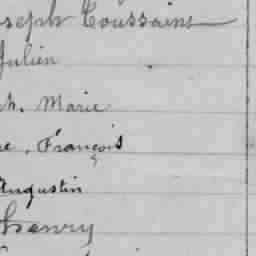 oseph Toussaint
Julien
h. Marie
re, François
Augustin
Henry